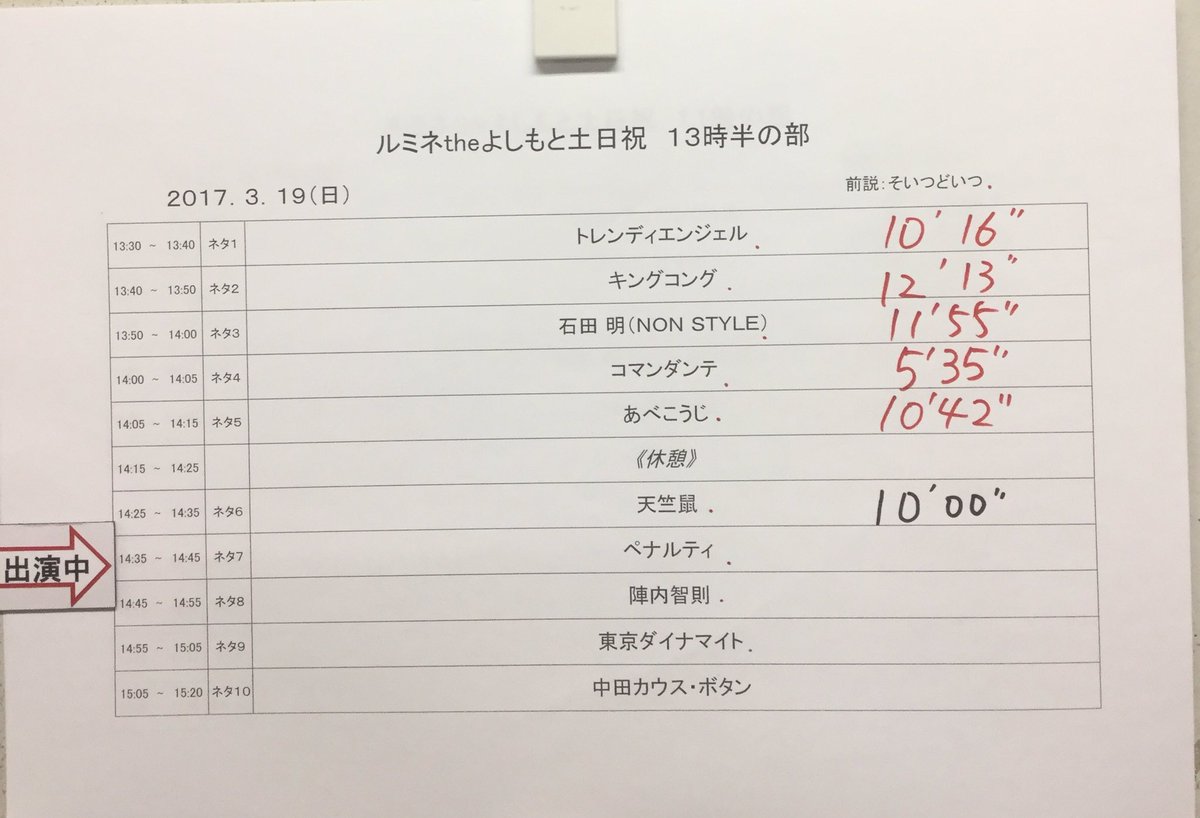 ルミネtheよしもと土日祝　13時半の部
前説：そいつどいつ
2017. 3. 19（日）
13:30 ～ 13:40 ネタ1 トレンディエンジェル 10'16"
13:40 ～ 13:50 ネタ2 キングコング 12'13"
13:50 ～ 14:00 ネタ3 石田 明（NON STYLE） 11'55"
14:00 ～ 14:05 ネタ4 コマンダンテ 5'35"
14:05 ～ 14:15 ネタ5 あべこうじ 10'42"
14:15 ～ 14:25 《休憩》
14:25 ～ 14:35 ネタ6 天竺鼠 10'00"
出演中
14:35 ～ 14:45 ネタ7 ペナルティ
14:45 ～ 14:55 ネタ8 陣内智則
14:55 ～ 15:05 ネタ9 東京ダイナマイト
15:05 ～ 15:20 ネタ10 中田カウス・ボタン